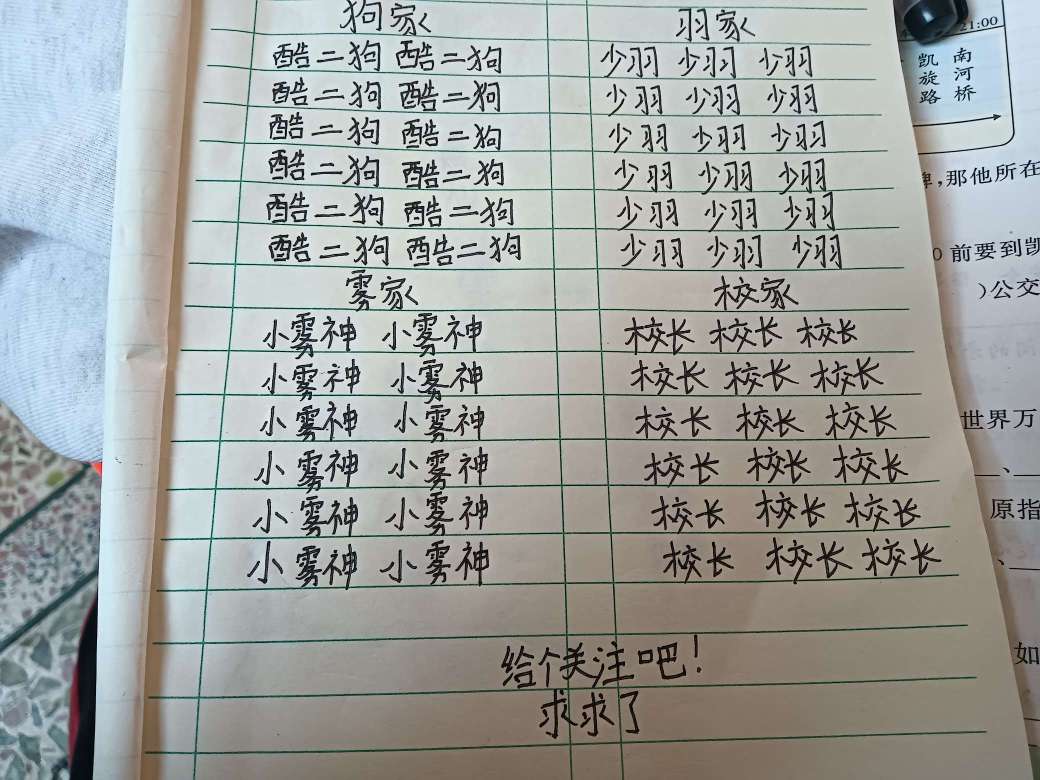 狗家
酷二狗 酷二狗
酷二狗 酷二狗
酷二狗 酷二狗
酷二狗 酷二狗
酷二狗 酷二狗
酷二狗 酷二狗
羽家
少羽 少羽 少羽
少羽 少羽 少羽
少羽 少羽 少羽
少羽 少羽 少羽
少羽 少羽 少羽
少羽 少羽 少羽
雾家
小雾神 小雾神
小雾神 小雾神
小雾神 小雾神
小雾神 小雾神
小雾神 小雾神
小雾神 小雾神
校家
校长 校长 校长
校长 校长 校长
校长 校长 校长
校长 校长 校长
校长 校长 校长
校长 校长 校长
给个关注吧!
求求了
21:00
凯旋路
南河桥
,那他所在
0 前要到凯
)公交
世界万
、
原指
、
如